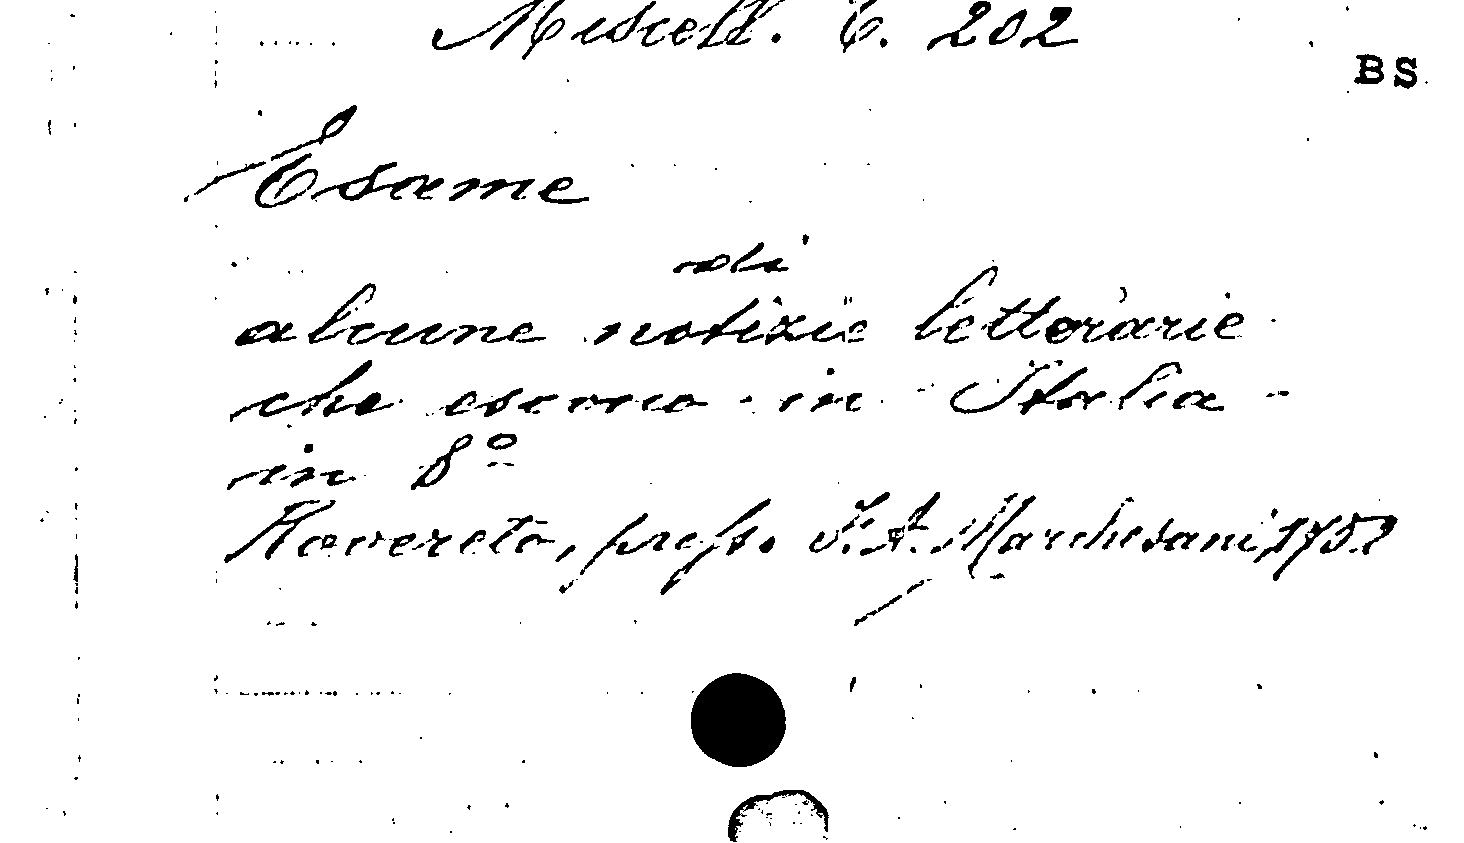 Miscell. C. 202
BS
Esame
di
alcune notizie letterarie
che escono in Italia -
in 8º
Rovereto, press. F. A. Marchesani, 1752